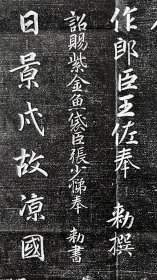 作郎臣王佐奉 勅撰
詔賜紫金魚袋臣張少悌奉 勅書
日景戌故凉國